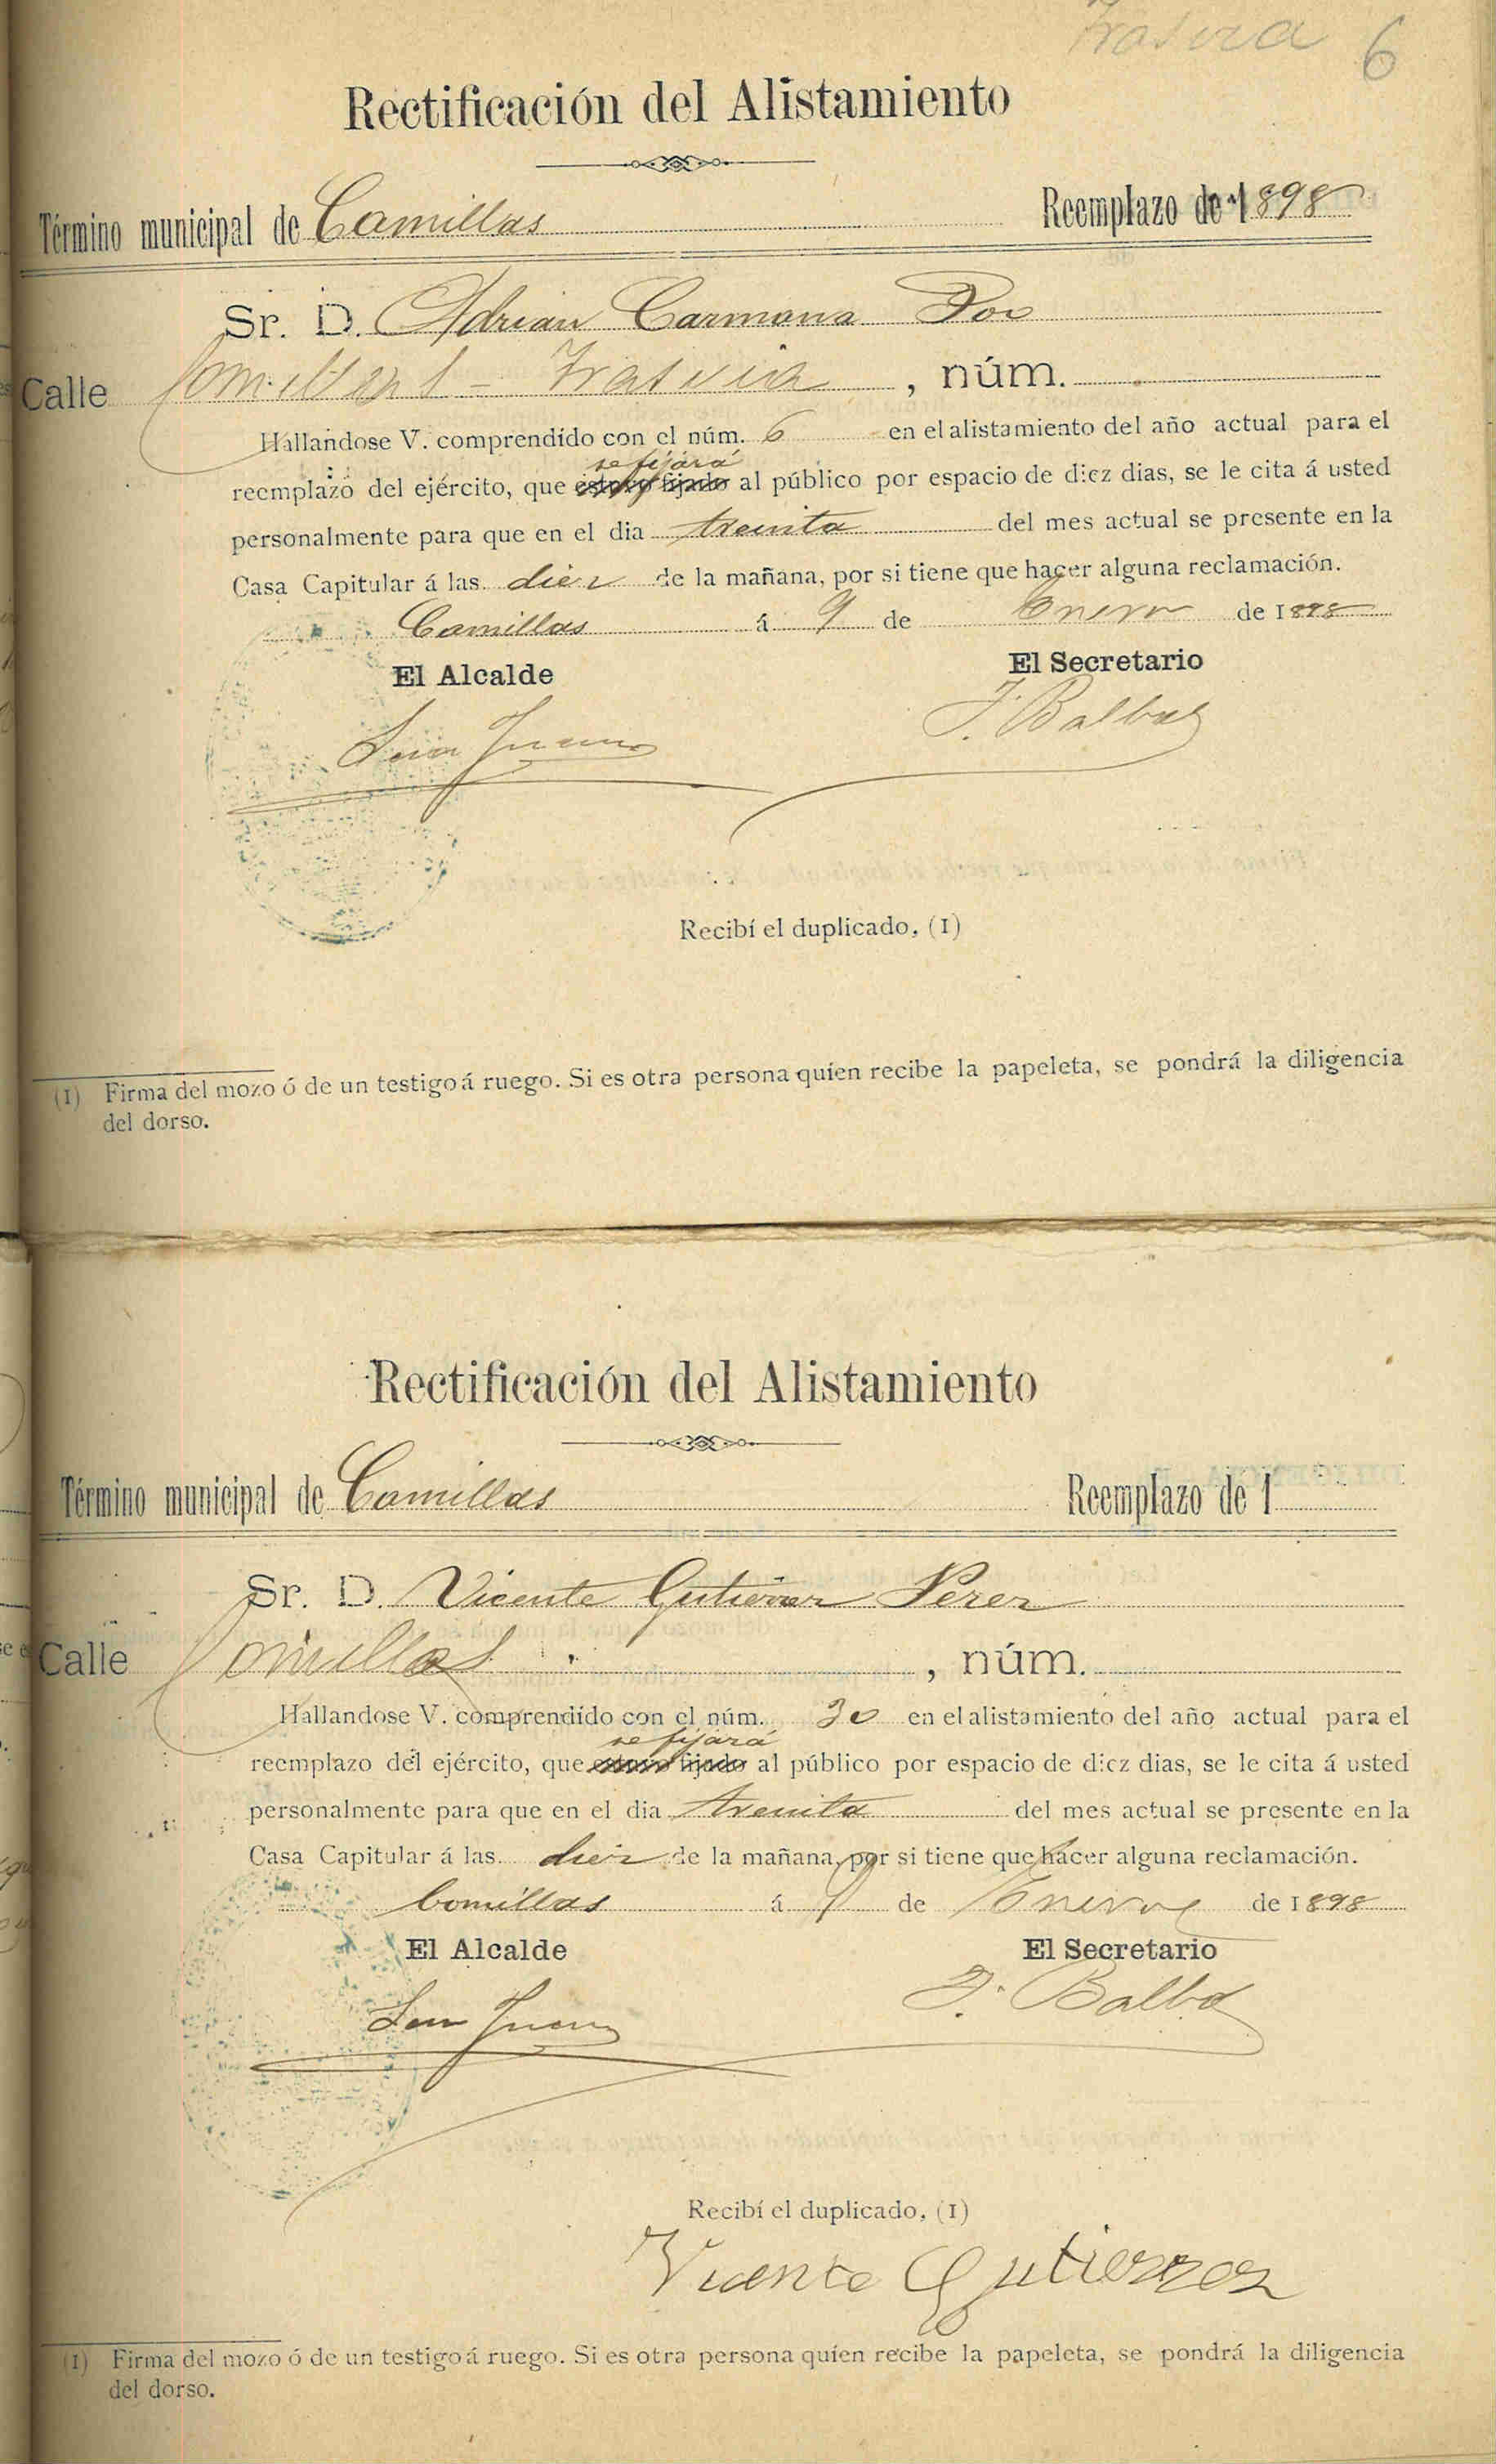 Trasvia 6
Rectificación del Alistamiento
Término municipal de Comillas Reemplazo de 1898
Sr. D. Adrian Carmona Poo
Calle Comillas - Trasvia, núm.
Hallandose V. comprendido con el núm. 6 en el alistamiento del año actual para el
se fijará
reemplazo del ejército, que estará fijado al público por espacio de diez dias, se le cita á usted
personalmente para que en el dia treinta del mes actual se presente en la
Casa Capitular á las diez de la mañana, por si tiene que hacer alguna reclamación.
Comillas á 9 de Enero de 1898
El Alcalde El Secretario
J. Balbas
Recibí el duplicado, (1)
(1) Firma del mozo ó de un testigo á ruego. Si es otra persona quien recibe la papeleta, se pondrá la diligencia
del dorso.
Rectificación del Alistamiento
Término municipal de Comillas Reemplazo de 1
Sr. D. Vicente Gutierrez Perez
Calle Comillas, núm.
Hallandose V. comprendido con el núm. 30 en el alistamiento del año actual para el
se fijará
reemplazo del ejército, que estará fijado al público por espacio de diez dias, se le cita á usted
personalmente para que en el dia treinta del mes actual se presente en la
Casa Capitular á las diez de la mañana, por si tiene que hacer alguna reclamación.
Comillas á 9 de Enero de 1898
El Alcalde El Secretario
J. Balbas
Recibí el duplicado, (1)
Vicente Gutierrez
(1) Firma del mozo ó de un testigo á ruego. Si es otra persona quien recibe la papeleta, se pondrá la diligencia
del dorso.